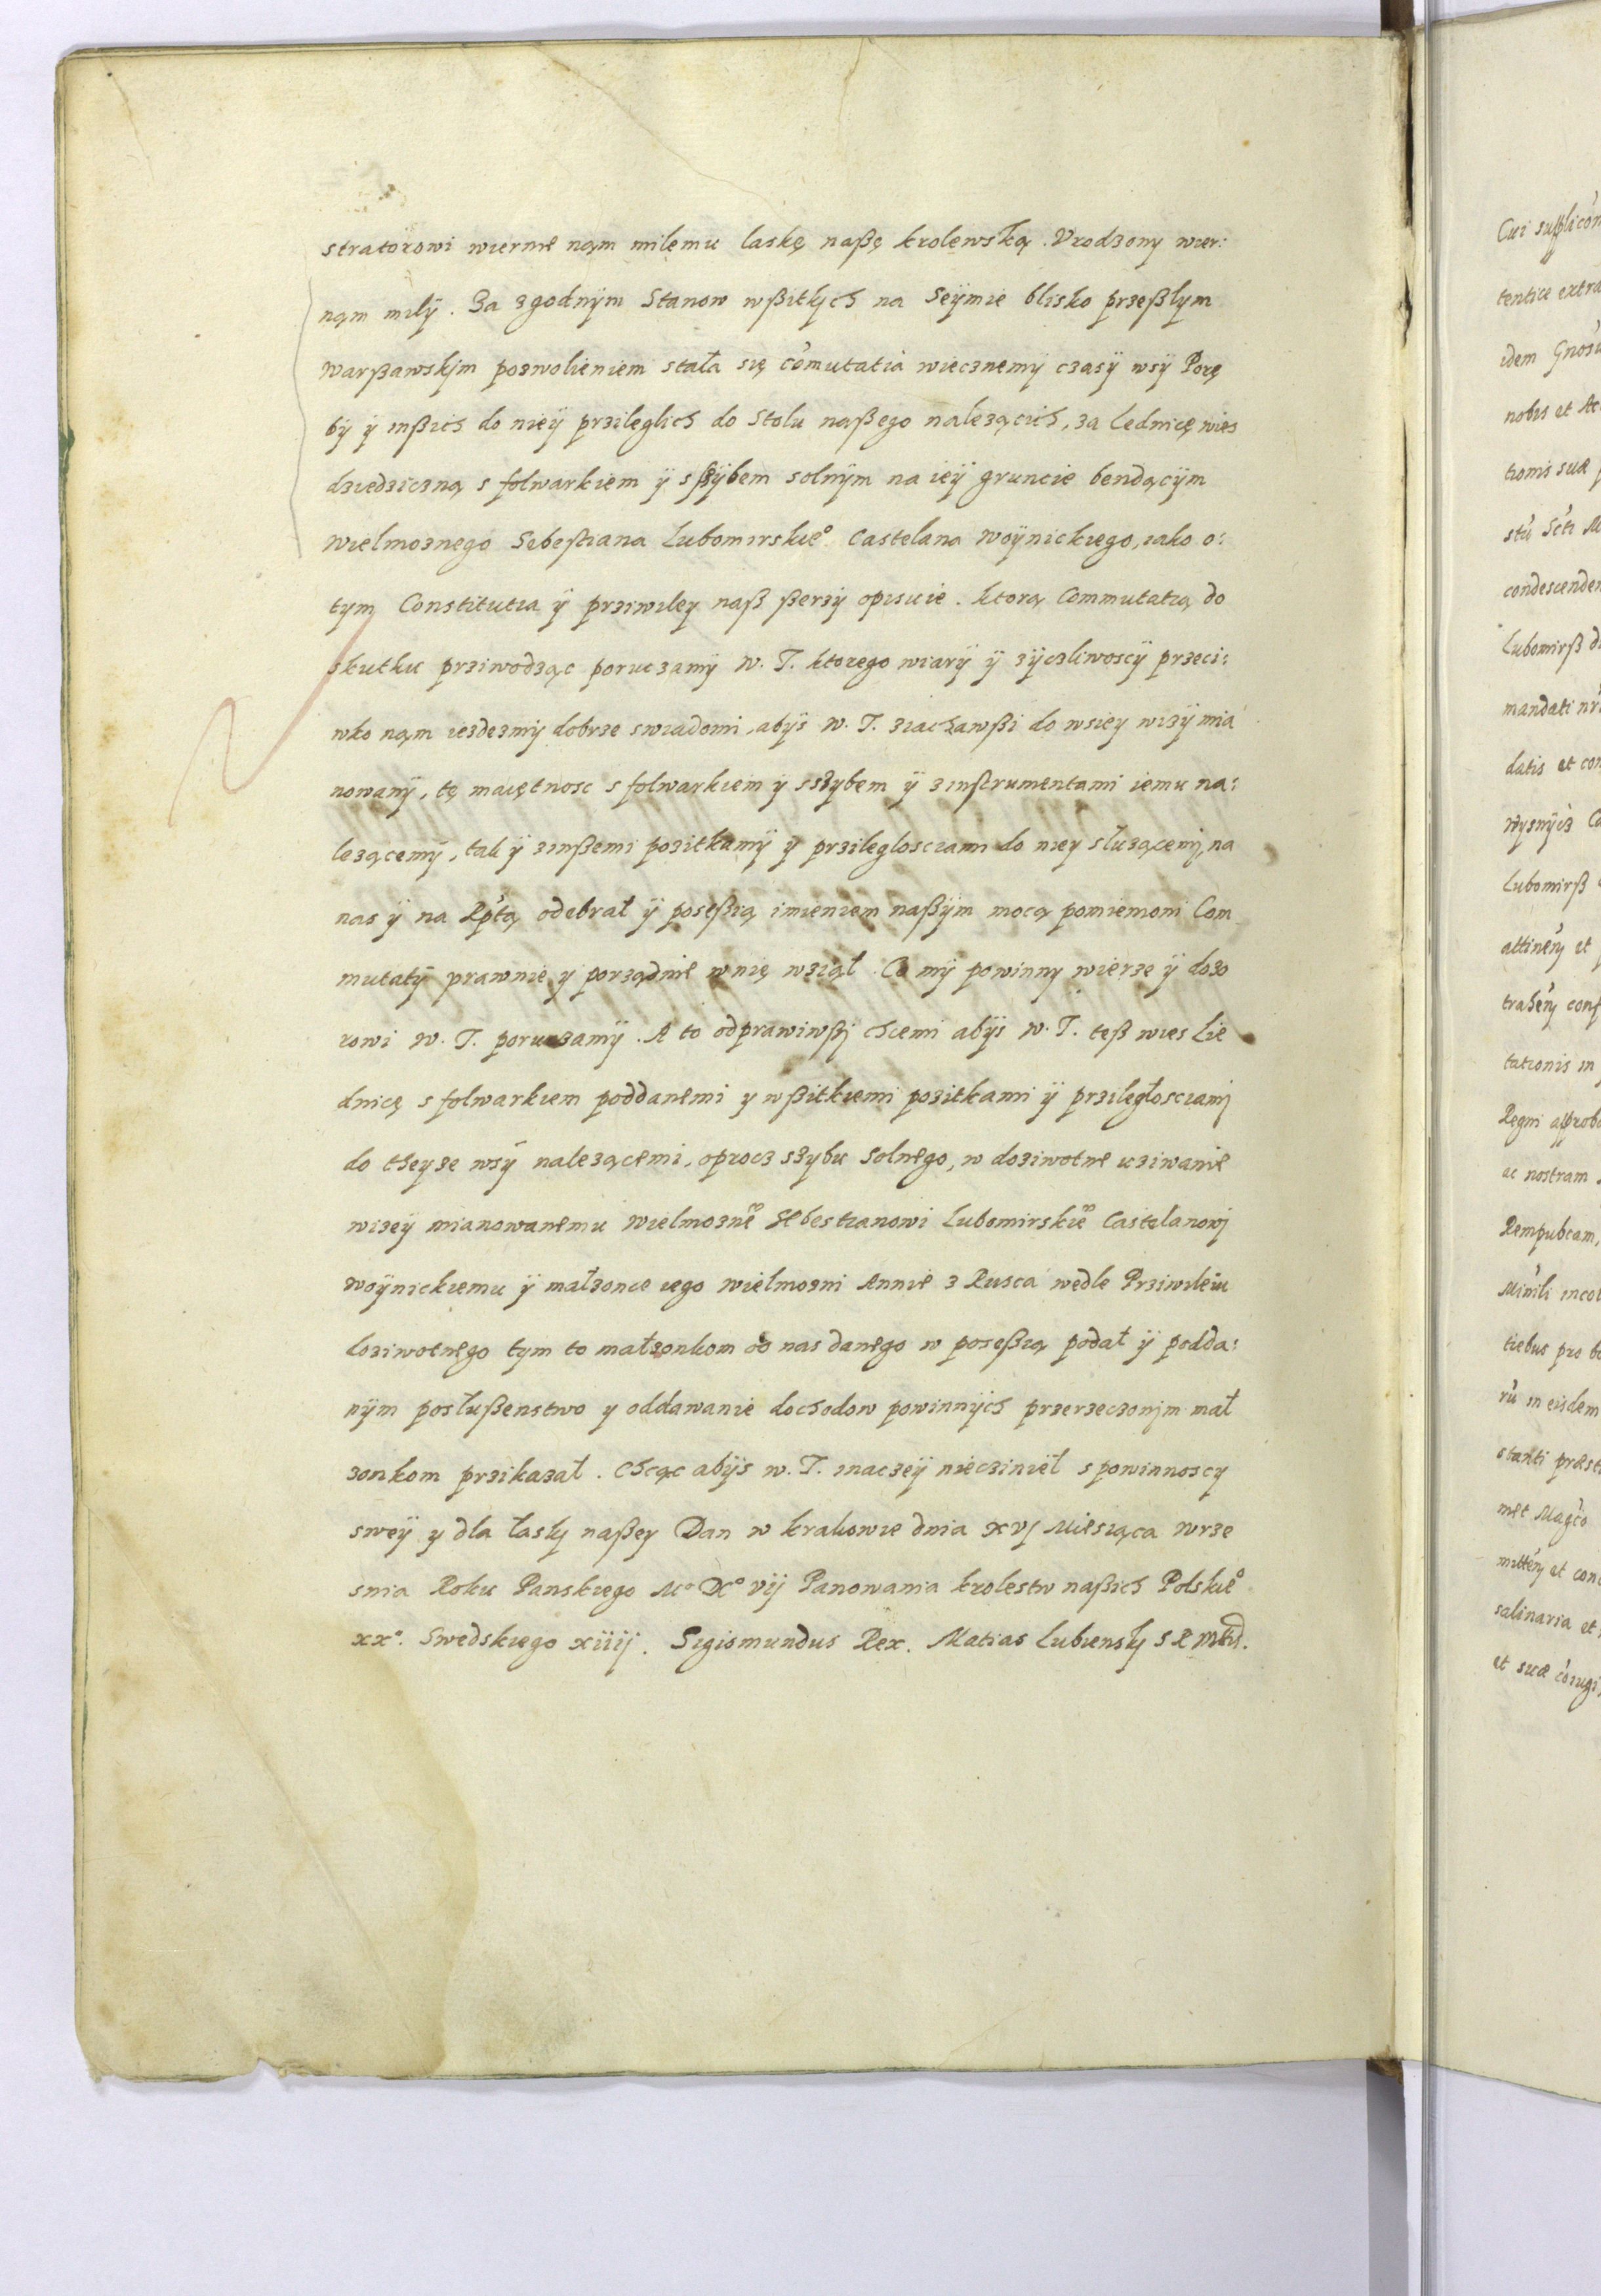 stratorowi wiernie nąm milęmu laskę naßę krolewską. Vrodzony wier:
nąm miłÿ. Za zgodnÿm Stanow wßitkÿch na Seÿmie blisko przęßłym
Warßawskÿm pozwolieniem stała się comutatia wiecznemÿ czasÿ wsÿ Porę
bÿ ÿ inßich do nieÿ prziległich do Stolu naßego należącich, za Lednicę wies
dziedziczną s folwarkiem ÿ sßÿbem solnÿm na ieÿ gruncie bendącÿm
Wielmoznego Sebestiana Lubomirskie° Castelana Woÿnickiego, iako o:
tym Constitutia ÿ prziwiley naß ßerzÿ opisuie. ktorą Commutatią do
skutku prziwodząc poruczamÿ W. T. ktorego wiarÿ ÿ zÿczliwoscÿ przeci:
wko nąm iezdezmÿ dobrze swiadomi, abÿs W. T. ziachawßi do wsiey wizÿ mia
nowanÿ, tę maiętnosc s folwarkiem ÿ sszybem ÿ z instrumentami iemu na:
lezącemÿ, tak ÿ zinßemi pozitkamÿ ÿ prziległosciami do niey słuzącemÿ, na
nas ÿ na Rptą odebrał ÿ poseßią imieniem naßÿm mocą pomienioni Com
mutatÿ prawnie ÿ porządnie w nię wziął. Co mÿ powinny wierze ÿ dozo
rowi W. T. poruczamÿ. A to odprawiwßj chcemi abÿs W. T. teß wies Lie
dnicę s folwarkiem poddanemi y wßitkiemi pozitkami ÿ prziległosciamj
do theyze wsÿ nalezącemi, oprocz szybu solnego, w doziwotne uziwanie
wizeÿ mianowanemu Wielmozne° Sebestianowi Lubomirskie° Castelanowj
Woÿnickiemu ÿ małzonce iego Wielmozni Annie z Rusca wedle Prziwileiu
doziwotnego tym to małzonkom od nas danego w poseßią podał ÿ podda:
nÿm posłußenstwo y oddawanie dochodow powinnÿch przerzeczonÿm mał
zonkom przikazał. Chcąc abÿs W. T. inaczeÿ nieczinieł s powinnoscy
sweÿ y dla łaskÿ naßey Dan w krakowie dnia XVj Miesiąca Wrze
snia Roku Panskiego M° DC° Vij Panowania krolestw naßich Polskie°
XX°. Swedskiego Xiiij. Sigismundus Rex. Matias Lubienskÿ S R

Cui
tentice
idem
nobis et
tionis suæ
condescenden
Lubomirß
mandati
datis et
Lubomirß
attinen et
tationis in
Regni
ac nostram
Rempubcam,
tiebus pro
in eisdem
et con
salinaria et
et suæ